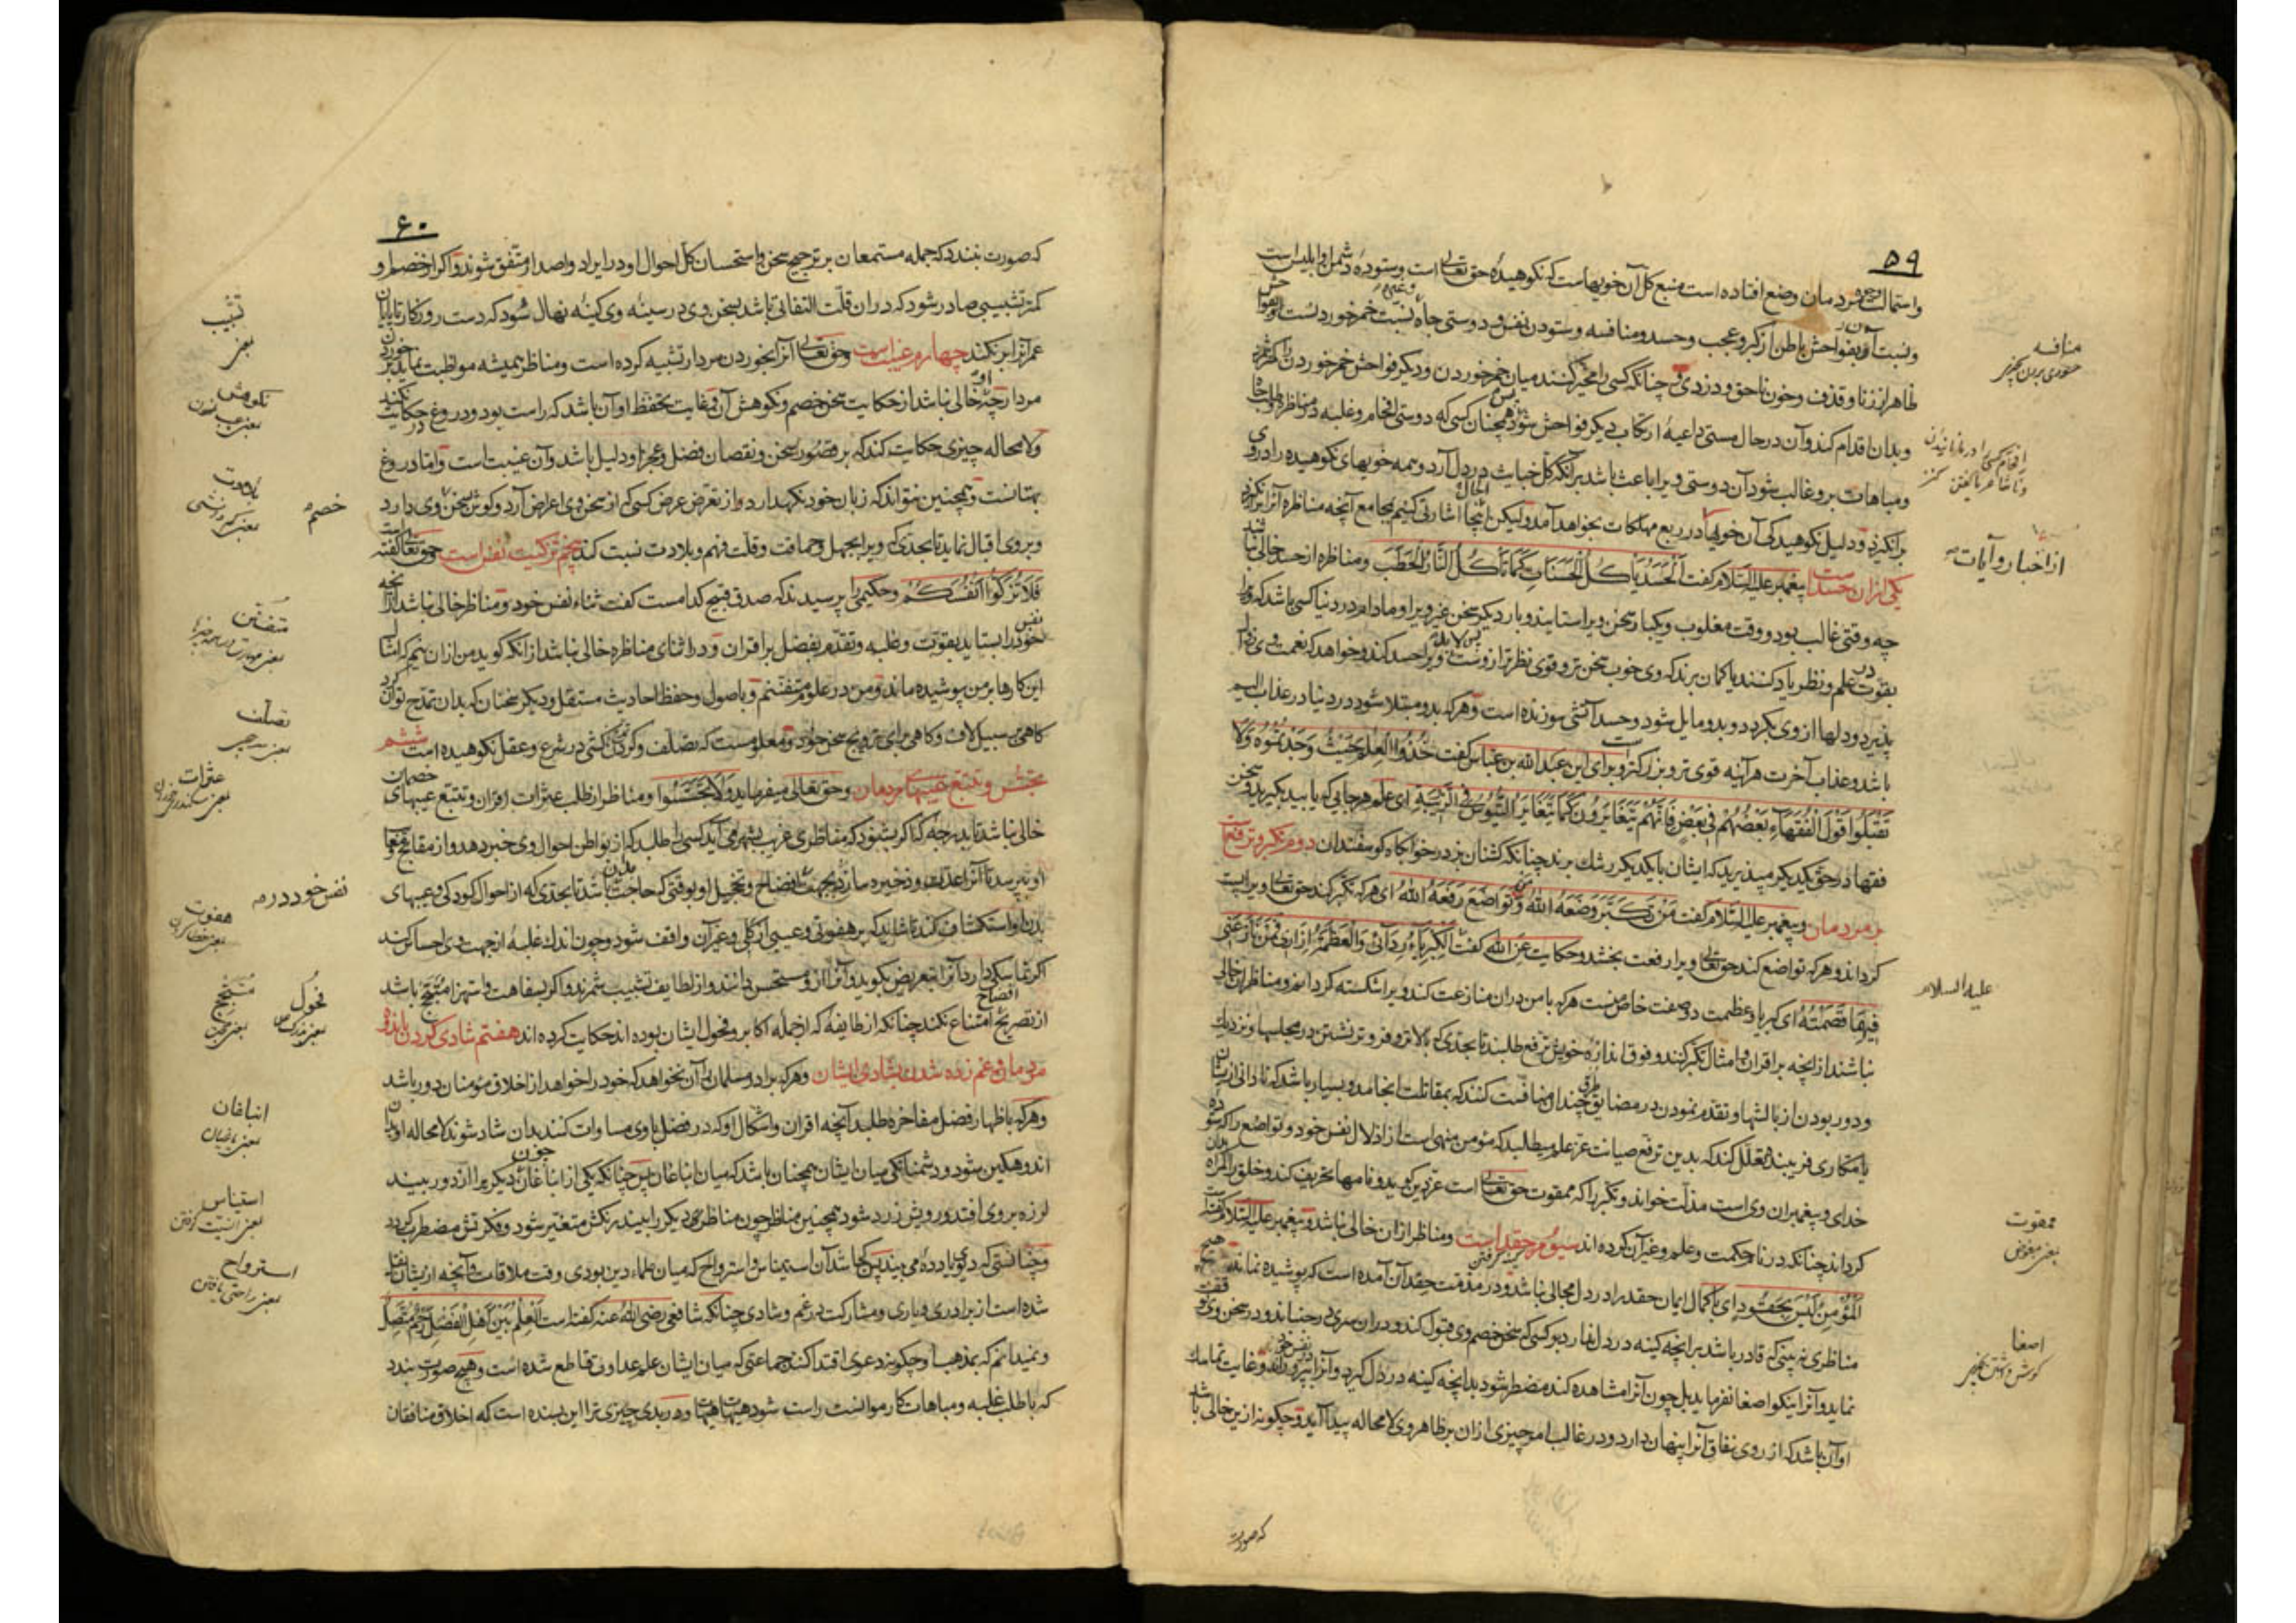 ۵۹
واستمالت مردمان وضع افتاده است منبع کل آن خویهاست که نکوهیدۀ حق تعالی است وستودۀ دشمن او ابلیس است
ونسبت آن بفواحش باطن از کبر وعجب وحسد ومنافسه وستودن نفس ودوستی جاه نسبت خمر خوردنست وفواحش
ظاهر از زنا وقذف وخون ناحق ودزدی چنانکه کسی را مخیر کنند میان خمر خوردن ودیگر فواحش خمر خوردن را
وبدان اقدام کند وآن در حال مستی داعیۀ ارتکاب دیگر فواحش شود همچنان کسی که دوستی افحام وغلبه در مناظره وطلب جاه
ومباهات برو غالب شود آن دوستی ویرا باعث باشد برآنکه کل خبایث در دل آرد وهمه خویهای نکوهیده را در وی
برانگیزد ودلیل نکوهیدگی آن خویها در ربع مهلکات بخواهد آمد ولیکن اینجا اشارتی کنیم بمجامع آنچه مناظره آنرا برانگیزد
یکی ازان حسد است پیغمبر علیه السلام گفت الحسد یأکل الحسنات کما تأکل النار الحطب ومناظره از حسد خالی نباشد
چه وقتی غالب بود ووقت مغلوب ویکبار سخن ویرا ستایند وبار دیگر سخن غیر ویرا ومادام در دنیا کسی باشد که ویرا
بقوت علم ونظر یاد کنند یا گمان برند که وی خوب سخن تر وقوی نظرتر ازوست ویرا حسد کند وخواهد که نعمت وی زوال
پذیرد ودلها از وی بگردد وبدو مایل شود وحسد آتشی سوزنده است وهرکه بدو مبتلا شود در دنیا در عذاب الیم
باشد وعذاب آخرت هرآینه قوی تر وبزرگتر وبرای این عبد الله بن عباس گفت خذوا العلم حیث وجدتموه ولا
تقبلوا قول الفقهاء بعضهم فی بعض فانهم یتغایرون کما تتغایر التیوس فی الزریبة ای علم هرجایی که یابید بگیرید وسخن
فقها در حق یکدیگر مپذیرید که ایشان با یکدیگر رشک برند چنانکه گشنان بز در خوابگاه گوسفندان دوم تکبر وترفع
بر مردمان وپیغمبر علیه السلام گفت من تکبر وضعه الله ومن تواضع رفعه الله ای هرکه تکبر کند حق تعالی ویرا پست
گرداند وهرکه تواضع کند حق تعالی ویرا رفعت بخشد وحکایت عن الله گفت الکبریاء ردائی والعظمة ازاری فمن نازعنی
فیهما قصمته ای کبریا وعظمت دو صفت خاص منست هرکه با من دران منازعت کند ویرا شکسته گردانم ومناظران خالی
نباشند از آنچه بر اقران وامثال تکبر کنند وفوق اندازۀ خویش ترفع طلبند تا بحدی که بالاتر وفروتر نشستن در مجلسها ونزدیک
ودور بودن از بالشها وتقدم نمودن در مضایق طرق چندان منافست کنند که بمقاتلت انجامد وبسیار باشد که نادانی ازیشان
یا مکاری فریبنده تعلل کند که بدین ترفع صیانت عز علم میطلبد که مؤمن منهی است از اذلال نفس خود وتواضع را که ستوده
خدای وپیغمبران وی است مذلت خواند وتکبر را که ممقوت حق تعالی است عز دین گوید ونامها تحریف کند وخلق را گمراه
گرداند چنانکه در نام حکمت وعلم وغیر آن کرده اند سیوم حقد است ومناظر ازان خالی نباشد وپیغمبر علیه السلام گفت
المؤمن لیس بحقود ای با کمال ایمان حقد را در دل مجالی نباشد ودر مذمت حقد آن آمده است که پوشیده نماند
مناظری نه بینی که قادر باشد برآنچه کینه در دل ندارد بر کسی که سخن خصم وی قبول کند ودران سری در جنباند ودر سخن وی توقف
نماید وآنرا نیکو اصغا نفرماید بل چون آنرا مشاهده کند مضطر شود بدانچه کینه در دل گیرد وآنرا بپرورد وغایت تماسک
او آن باشد که از روی نفاق آنرا پنهان دارد ودر غالب امر چیزی ازان بر ظاهر وی لا محاله پیدا آید وچگونه ازین خالی باشد
که صورت
منافسه
از اخبار وآیات
علیه السلام
ممقوت
بمعنی مبغوض
اصغا
۶۰
که صورت نبندد که جمله مستمعان بر ترجیح سخن واستحسان کل احوال او در ایراد واصدار متفق شوند واگر از خصم او
کمتر تشبیبی صادر شود که دران قلت التفاتی باشد بسخن وی در سینه وی کینه نهال شود که دست روزگار تا پایان
عمر آنرا بر نکند چهارم غیبت است وحق تعالی آنرا بخوردن مردار تشبیه کرده است ومناظر همیشه مواظبت نماید بر خوردن
مردار چه خالی نباشد از حکایت سخن خصم ونکوهش آن وغایت تحفظ او آن باشد که راست بود ودروغ در حکایت نکند
ولا محاله چیزی حکایت کند که بر قصور سخن ونقصان فضل وعجز او دلیل باشد وآن غیبت است واما دروغ
بهتانست وهمچنین نتواند که زبان خود نگهدارد واز تعرض عرض کسی که از سخن وی اعراض آرد وگوش بسخن وی دارد
وبروی اقبال نماید تا بحدی که ویرا بجهل وحماقت وقلت فهم وبلادت نسبت کند پنجم تزکیت نفس است حق تعالی گفته است
فلا تزکوا انفسکم وحکیمی را پرسیدند که صدق قبیح کدامست گفت ثناء نفس خود ومناظر خالی نباشد از آنچه
خود را بستاید بقوت وغلبه وتقدم بفضل بر اقران ودر اثنای مناظره خالی نباشد از آنکه گوید من ازان نیم که امثال
این کارها بر من پوشیده ماند ومن در علوم متفننم وباصول وحفظ احادیث مستقل ودیگر سخنان که بدان تمدح توان کرد
گاهی بر سبیل لاف وگاهی برای ترویج سخن خود ومعلومست که تصلف وگردن کشی در شرع وعقل نکوهیده است ششم
تجسس وتتبع عیبهای مردمان وحق تعالی میفرماید ولا تجسسوا ومناظر از طلب عثرات اقران وتتبع عیبهای خصمان
خالی نباشد تا بدرجه که اگر بشنود که مناظری غریب بشهر می آید کسی را طلبد که از بواطن احوال وی خبر دهد واز مقابح
او بپرسد تا آنرا عدت وذخیره سازد بجهت افضاح وتخجیل او بوقتی که حاجت باشد تا بحدی که از احوال کودکی وعیبهای
بدن او استکشاف کند تا شاید که بر هفوتی وعیبی از کلی وغیر آن واقف شود وچون اندک غلبۀ از جهت وی احساس کند
اگر تماسکی دارد آنرا بتعریض بگوید وآنرا ازو مستحسن دانند واز لطایف تشبیب شمرند واگر بسفاهت واستهزا متبجح باشد
از تصریح امتناع نکند چنانکه از طایفۀ که از جملۀ اکابر وفحول ایشان بوده اند حکایت کرده اند هفتم شادی کردن باندوه
مردمان وغم زده شدن بشادی ایشان وهرکه برادر مسلمان را آن نخواهد که خود را خواهد از اخلاق مؤمنان دور باشد
وهرکه باظهار فضل مفاخره طلبد آنچه اقران واشکال او که در فضل باوی مساوات کنند بدان شاد شوند لا محاله او بدان
اندوهگین شود ودشمنانگی میان ایشان همچنان باشد که میان انباغان پس چنانکه یکی از انباغان چون دیگریرا از دور ببیند
لرزه بر وی افتد ورویش زرد شود همچنین مناظر چون مناظری دیگر را بیند رنگش متغیر شود وفکرتش مضطرب گردد
وچنانستی که دیوی یا ددۀ می بیند پس کجا شد آن استیناس واسترواح که میان علماء دین بودی وقت ملاقات وآنچه ازیشان نقل
شده است از برادری ویاری ومشارکت در غم وشادی چنانکه شافعی رضی الله عنه گفته است العلم بین اهل الفضل رحم متصل
ونمیدانم که بمذهب او چگونه دعوی اقتدا کنند جماعتی که میان ایشان علم عداوتی قاطع شده است وهیچ صورت بندد
که با طلب غلبه ومباهات کار موانست راست شود هیهات هیهات ودر بدی چیزی ترا این بسنده است که اخلاق منافقان
نکوهش
بلادت
خصم
متفنن
تصلف
عثرات
نفس خود در
هفوت
متبجح
فحول
انباغان
استیناس
استرواح